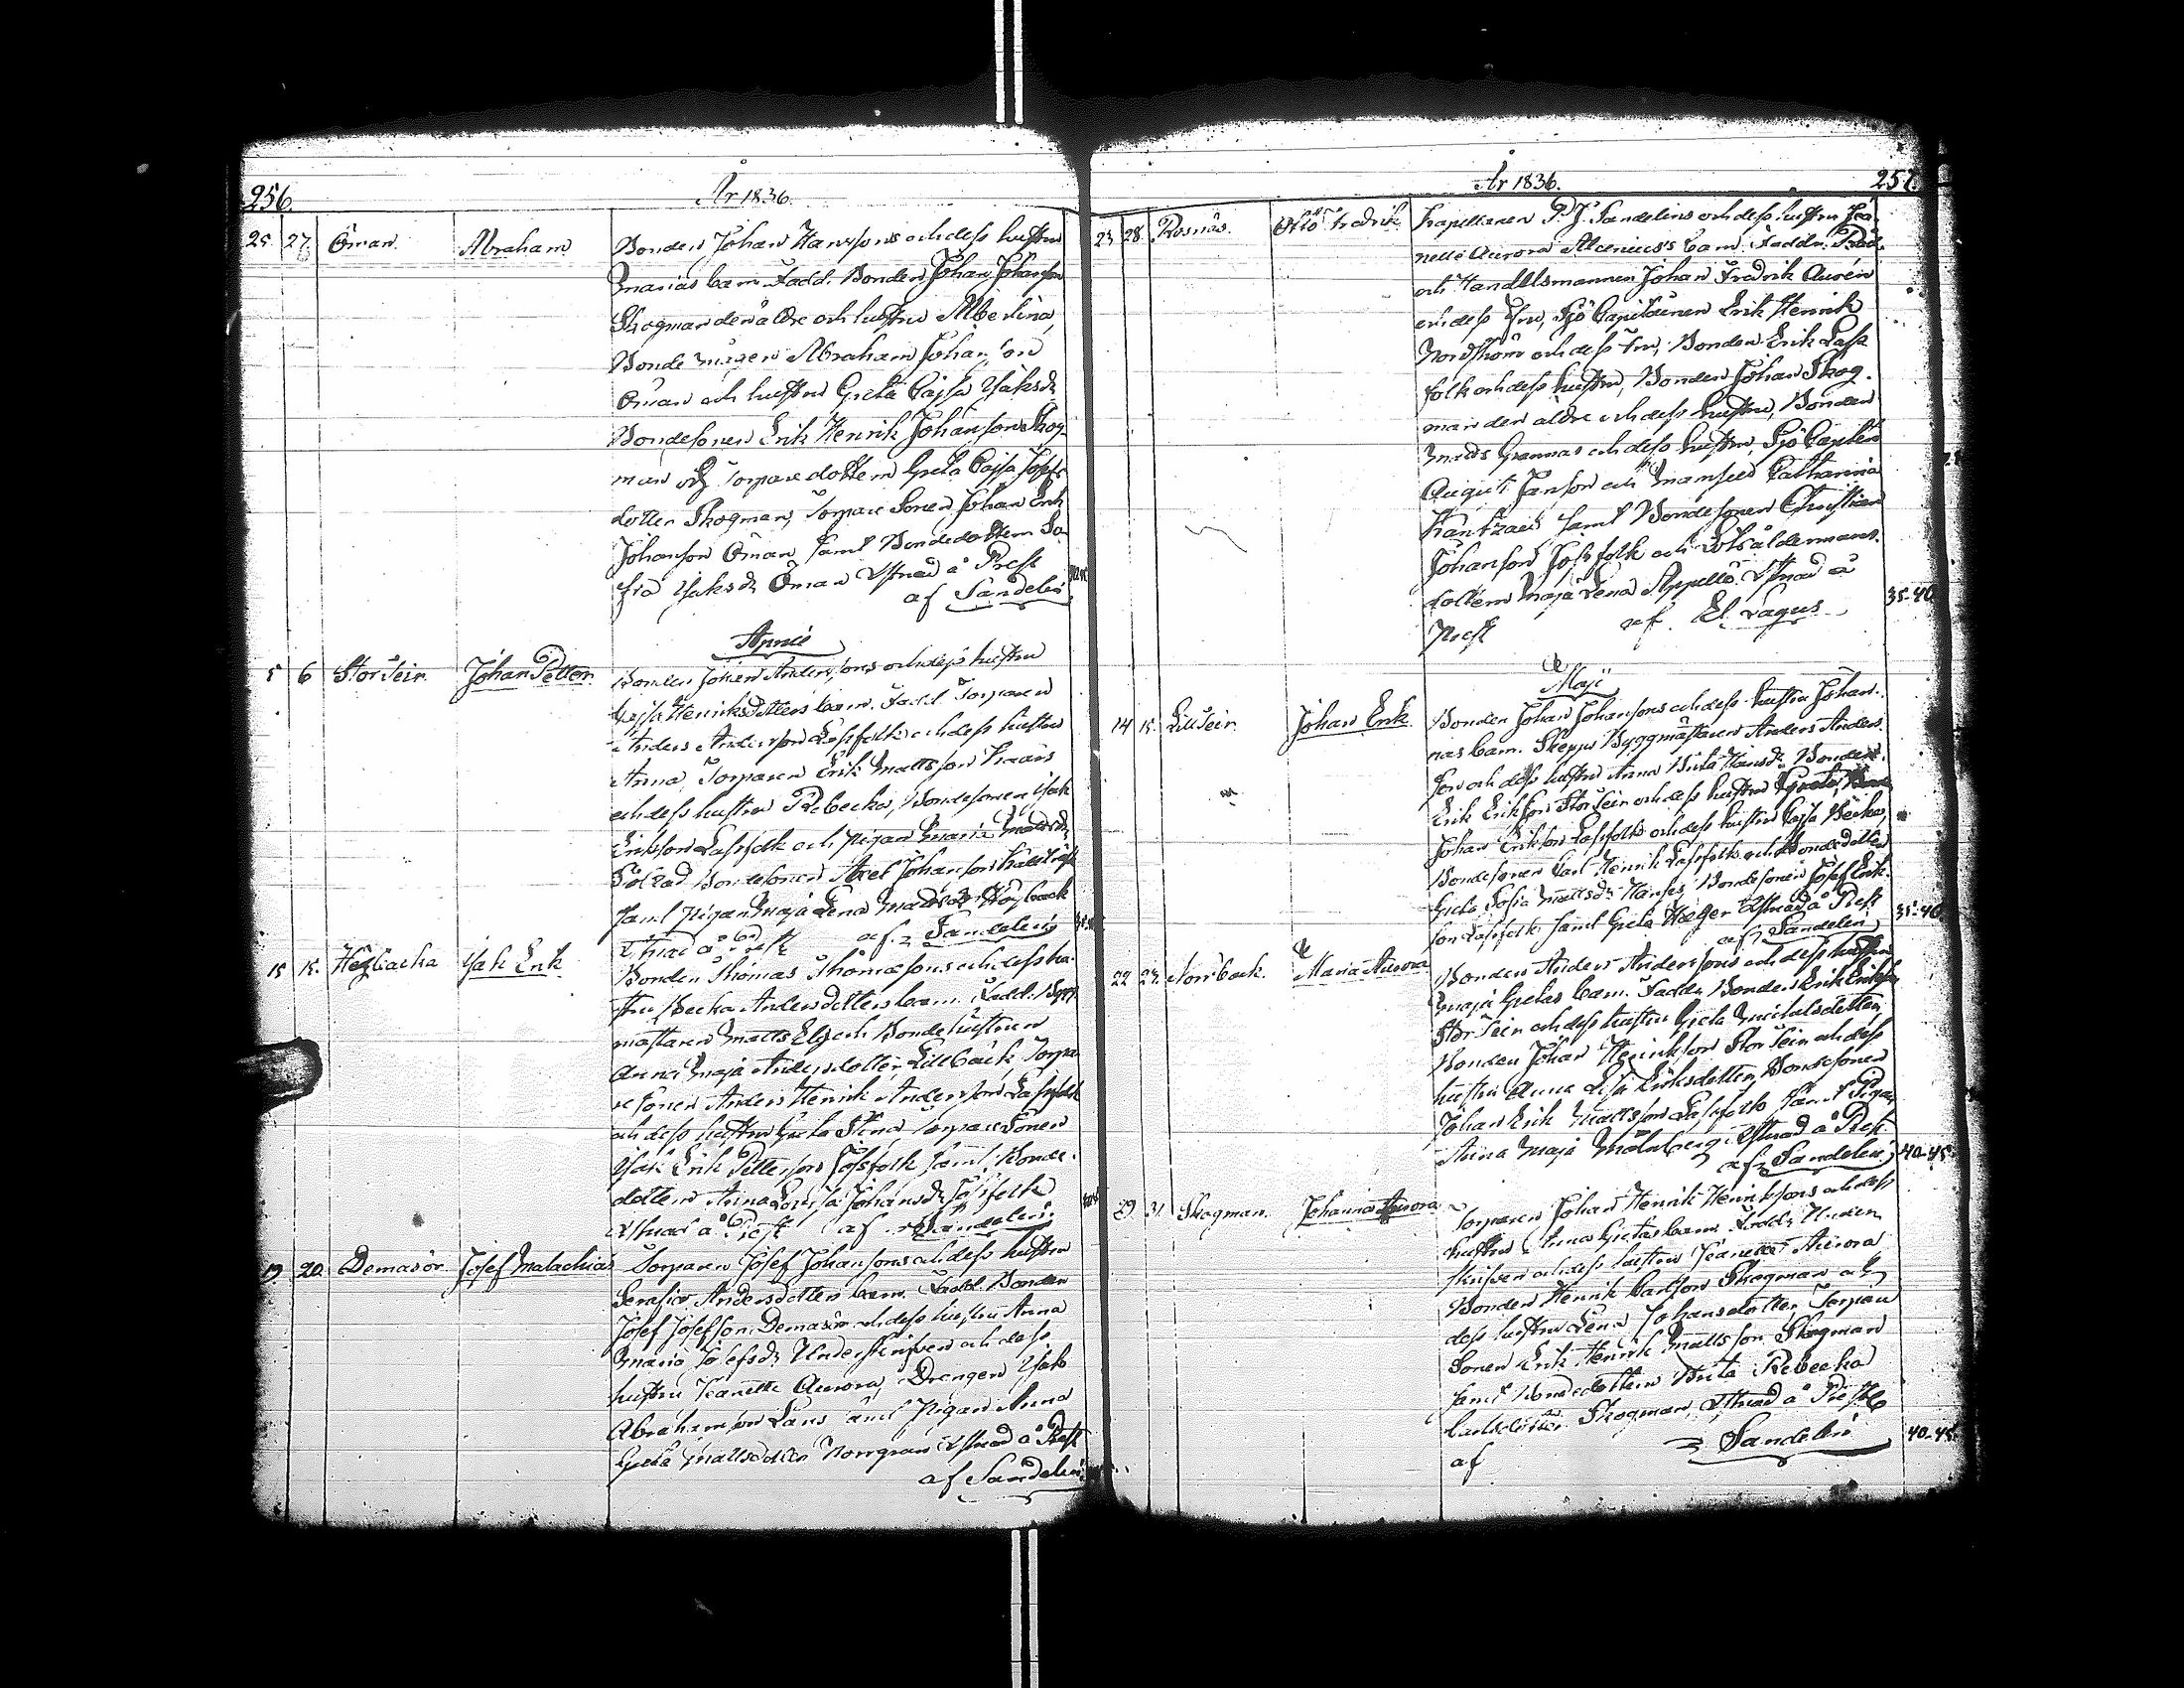 256.
År 1836.
25 27 Öman. Abraham Bonden Johan Hanssons och dess hustru
Marias barn Fadd. Bonden Johan Johansson
Skogman den äldre och hustru Albertina,
Bonde Mågen Abraham Johansson
Öman och hustru Greta Cajsa Jaksdr
Bondesonen Erik Henrik Johansson Skog-
man och Torparedottern Greta Cajsa Josefs
dotter Skogman, Torpare Sonen Johan Erik
Johansson Öman samt Bondedottern So-
fia Jaksdr Öman Åthuad å Prest
af Sandelin
April
5 6 Storteir Johan Petter Bonden Johan Anderssons och dess hustru
Cajsa Henriksdotters barn. Fadd. Torparen
Anders Andersson Lassfolk och dess hustru
Anna, Torparen Erik Mattsson
och dess hustru Rebecka, Bondesonen Jak
Eriksson Lassfolk och Pigan Maria Mattsdr
Bondesonen Axel Johansson
samt Pigan Maja Lena Mattsdr
å Prest af Sandelin
15 15. Hägbacka Jak Erik Bonden Thomas Thomassons och dess hu-
stru Becka Andersdotters barn. Fadd. Bygg
mästaren Matts Elg och Bondehustrun
Anna Maja Andersdotter Lillbäck Torpa-
re Sonen Anders Henrik Andersson Lassfolk
och dess hustru Greta Stina, Torpare Sonen
Jak Erik Pettersson Jossfolk samt Bonde-
dottern Anna Lovisa Johansdr Jossfolk
å Prest af Sandelin
19. 20. Demasör Josef Malachias Torparen Josef Johanssons och dess hustru
Serafia Andersdotters barn. Fadd. Bonden
Josef Josefsson Demasör och dess hustru Anna
Maria Josefsdr Underskrifven och dess
hustru Jeanette Aurora, Drengen Jak
Abrahamsson Lans samt Pigan Anna
Greta Mattsdotter Norrgran å Prest
af Sandelin
År 1836. 257.
23. 28. Rosnäs. Otto Fredrik Kapellanen P. J. Sandelins och dess hustru Jea-
nette Aurora Alcenius's barn. Faddr. Råd-
och Handelsmannen Johan Fredrik Aurén
och dess Fru, Sjö Capitainen Erik Henrik
Nordström och dess Fru, Bonden Erik Lass
folk och dess hustru, Bonden Johan Skog-
man den äldre och dess hustru, Bonden
Matts Grannas och dess hustru, Sjö Capten
August Janson och Mamsell Catharina
samt Bondesonen Christian
Johansson Jossfolk och Lotsåldermans-
dottern Maja Lena Appelö å
Prest af El. Lagus 35-40
Maji
14 15. Lillteir Johan Erik. Bonden Johan Johanssons och dess hustru Johan-
nas barn. Skepps Byggmästaren Anders Anders-
son och dess hustru Anna Brita Hansdr Bonden
Erik Eriksson Storteir och dess hustru Greta,
Johan Eriksson Lassfolk och dess hustru Cajsa Becka,
Bondesonen Carl Henrik Lassfolk och Bondedottern
Greta Sofia Mattsdr Hanses, Bondesonen Josef Erik-
son Lassfolk samt Greta Häger å Prest
af Sandelin 35-40
22 23. Norrback. Maria Aurora Bonden Anders Anderssons och dess hustru
Maja Gretas barn. Faddr. Bonden Erik Eriksson
Storteir och dess hustru Greta Mickelsdotter,
Bonden Johan Henriksson Storteir och dess
hustru Anna Lisa Eriksdotter, Bondesonen
Johan Erik Mattsson Lassfolk samt Pigan
Anna Maja Malmberg å Prest.
af Sandelin 40-45
29. 31. Skogman. Johanna Aurora Torparen Johan Henrik Henrikssons och dess
hustru Anna Gretas barn. Faddr. Under-
skrifven och dess hustru Jeanette Aurora
Bonden Henrik Carlsson Skogman och
dess hustru Lena Johansdotter, Torpare
Sonen Erik Henrik Mattsson Skogman
samt Bondedottern Brita Rebecka
Carlsdotter Skogman, å Prest
af Sandelin 40-45